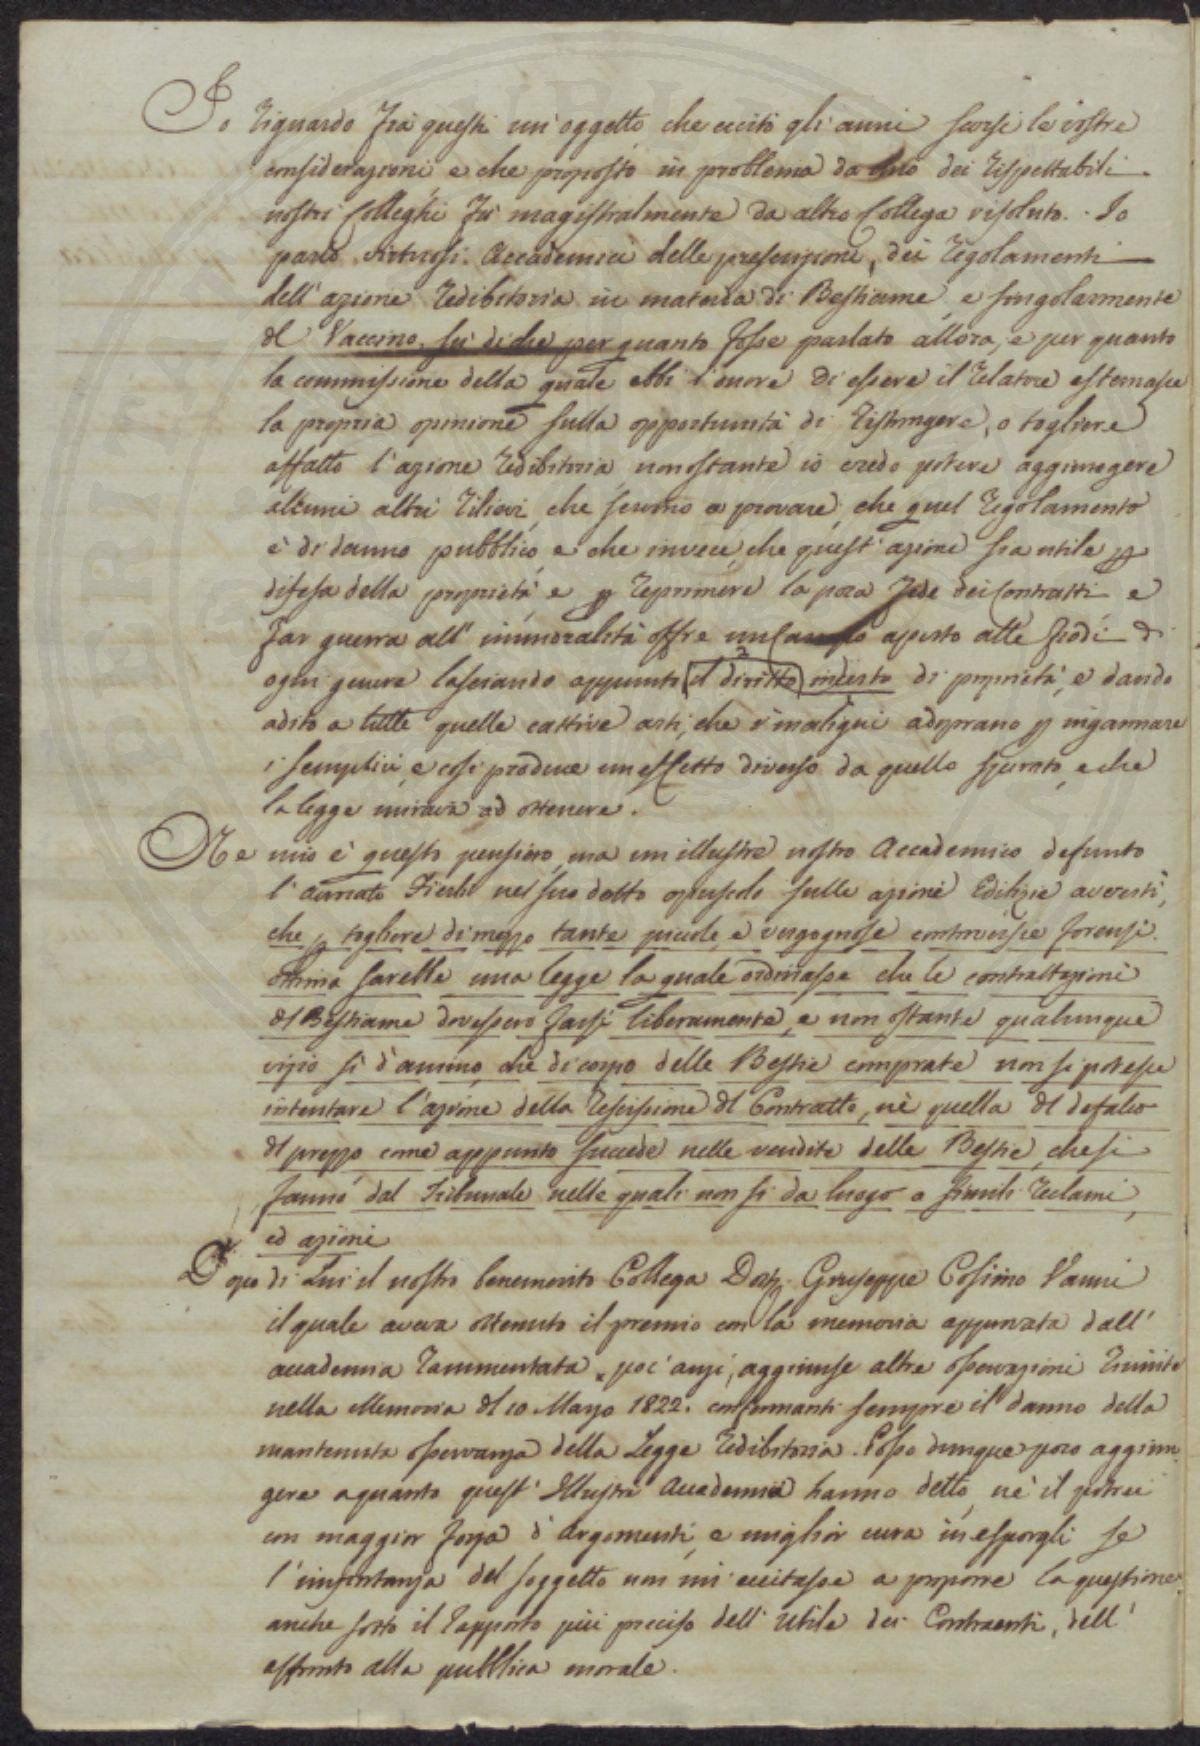 Io riguardo frà questi un'oggetto, che eccitò gli anni scorsi le vostre
considerazioni e che proposto in problema da uno dei rispettabili
nostri Colleghi fù magistralmente da altro Collega risoluto. Io
parlo virtuosi Accademici delle prescrizioni, dei regolamenti
dell'azione redibitoria in materia di Bestiame, e singolarmente
del Vaccino, sù di che per quanto fosse parlato allora, e per quanto
la commissione della quale ebbi l'onore di essere il relatore esternasse
la propria opinione sulla opportunità di ristringere, o togliere
affatto l'azione redibitoria nonostante io credo potere aggiungere
alcuni altri rilievi, che servino a provare, che quel regolamento
è di danno pubblico, e che invece, che quest'azione sia utile p
difesa della proprietà, e p reprimere la poca fede dei Contratti e
far guerra all'immoralità offre un Campo aperto alle frodi di
ogni genere lasciando appunto il diritto incerto di proprietà, e dando
2
adito a tutte quelle cattive arti, che i maligni adoprano p ingannare
i semplici, e così produce un effetto diverso da quello sperato, e che
la legge mirava ad ottenere.
Ne mio è questo pensiero, ma un illustre nostro Accademico defunto
l'avvocato nel suo dotto opuscolo sulle azioni Edilizie avvertì,
che p togliere di mezzo tante piccole, e vergognose controversie forensi.
ottima sarebbe una legge la quale ordinasse che le contrattazioni
del Bestiame dovessero farsi liberamente, e non ostante qualunque
vizio sì d'animo, che di corpo delle Bestie comprate non si potesse
intentare l'azione della rescissione del Contratto, nè quella del defalco
del prezzo come appunto succede nelle vendite delle Bestie, che si
fanno dal Tribunale nelle quali non si da luogo a simili reclami,
ed azioni
Dopo di Lui il nostro benemerito Collega Dott. Giuseppe Cosimo Vanni
il quale aveva ottenuto il premio con la memoria apprezzata dall'
accademia rammentata poc'anzi, aggiunse altre osservazioni riunite
nella Memoria del 10 Marzo 1822. confermanti sempre il danno della
mantenuta osservanza della Legge redibitoria. Posso dunque poco aggiun
gere a quanto quest'Illustri Accademici hanno detto, nè il potrei
con maggior forza d'argomenti, e miglior cura in esporgli se
l'importanza del soggetto non mi eccitasse a proporre la questione
anche sotto il rapporto più preciso dell'utile dei Contraenti, dell'
affronto alla pubblica morale.